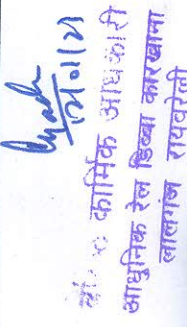 12/01/21
कार्मिक अधिकारी
आधुनिक रेल डिब्बा कारखाना
लालगंज रायबरेली